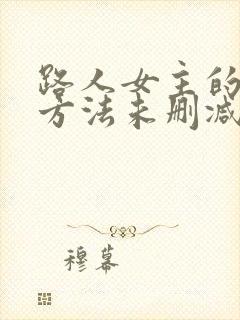 路人女主的
方法未删减
穆幕